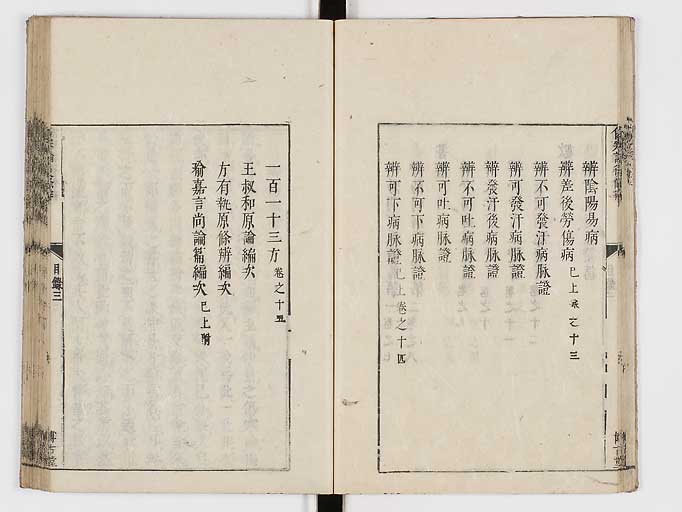 辨陰陽易病
辨差後勞傷病 已上卷之十三
辨不可發汗病脉證
辨可發汗病脉證
辨發汗後病脉證
辨不可吐病脉證
辨可吐病脉證
辨不可下病脉證
辨可下病脉證 已上卷之十四
目錄三
一百一十三方 卷之十五
王叔和原論編次
方有執原條辨編次
喻嘉言尚論篇編次 已上附
目錄三
博古堂